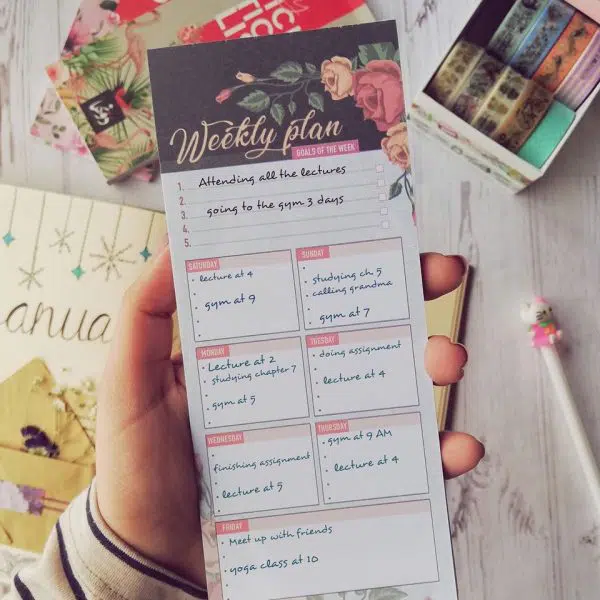 Weekly plan
GOALS OF THE WEEK
1. Attending all the lectures
2.
3. going to the gym 3 days
4.
5.
SATURDAY
lecture at 4
gym at 9
SUNDAY
studying ch. 5
calling grandma
gym at 7
MONDAY
Lecture at 2
studying chapter 7
gym at 5
TUESDAY
doing assignment
lecture at 4
WEDNESDAY
finishing assignment
lecture at 5
THURSDAY
gym at 9 AM
lecture at 4
FRIDAY
Meet up with friends
yoga class at 10
anua